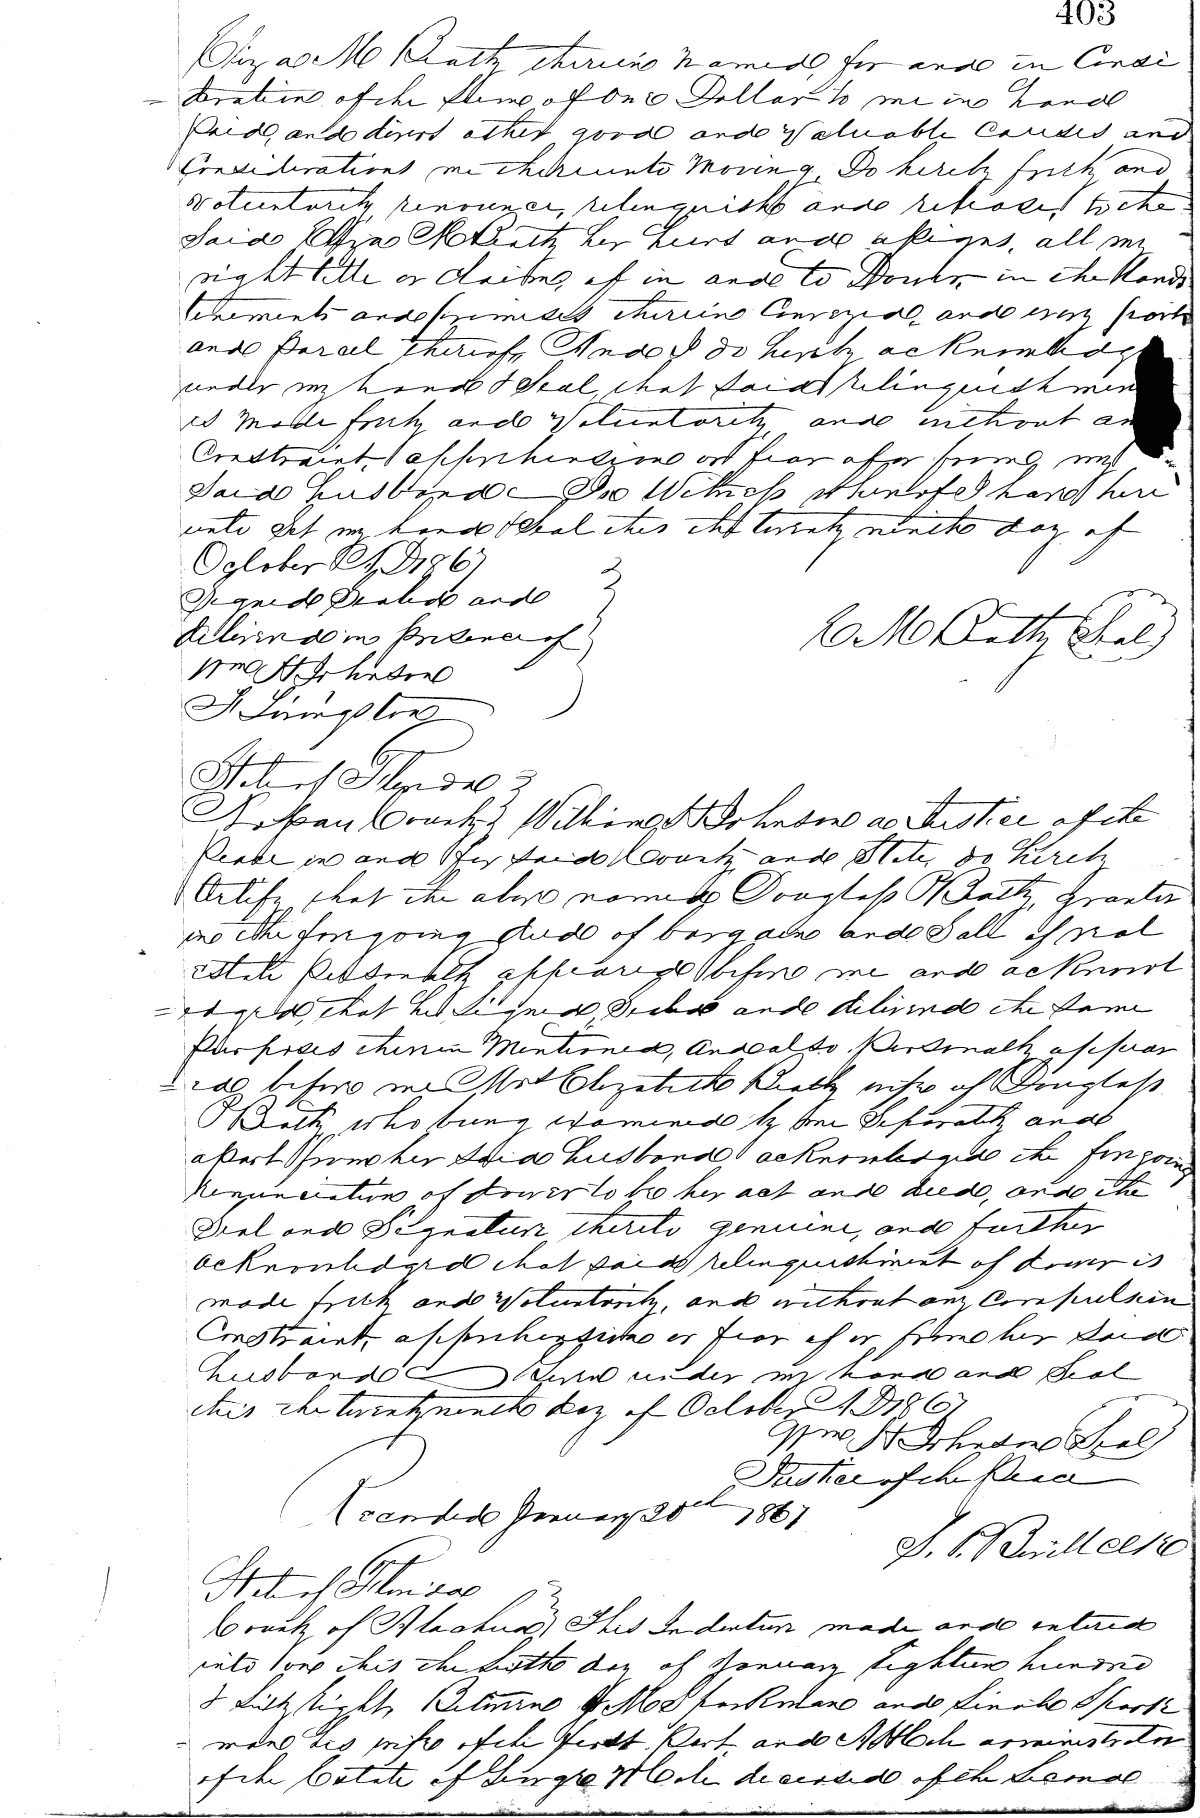 403
Eliza M Beatty therein named, for and in Consi
= deration of the Sume of One Dollar to me in hand
Paid, and divers other good and Valuable Causes and
Considerations me thereunto Moving, Do hereby freely and
Voluntarily, renounce, relinquish and release, to the
Said Eliza M Beatty her heirs and assigns, all my
right title or Claime, of in and to Dower, in the Lands
tenements and premises therein Conveyed, and every part
and Parcel thereof, And I do hereby acknowledge
under my hand & Seal, that said relinquishmen
is Made freely and Voluntarily and without an
Constraint, apprehension or fear of or from my
Said husband — In Witness whereof I have here
unto Set my hand & Seal this the twenty ninth day of
October A D 1867
Signed Sealed and
delivered in Presence of
E M Beatty (Seal)
Wm H Johnson
J Livingston
State of Florida
Nassau County } William H Johnson a Justice of the
Peace in and for said County and State, do hereby
Certify that the above named Douglass Beatty, grantor
in the foregoing deed of bargain and Sall of real
estate Personally appeared before me and acknowl
= edged, that he Signed Sealed and delivered the Same
Purposes therein Mentioned, and also Personally appear
= ed before me Mrs Elizabeth Beatty wife of Douglass
Beatty who being examined by me Separately and
apart from her Said husband acknowledged the foregoing
Renunciation of dower to be her act and deed, and the
Seal and Signature thereto genuine, and further
acknowledged that said relinquishment of dower is
made freely and Voluntarily, and without any Compulsion
Constraint, apprehension or fear of or from her Said
husband — Given under my hand and Seal
this the twenty ninth day of October A D 1867
Wm H Johnson (Seal)
Justice of the Peace
Recorded January 20th 1867
State of Florida
County of Alachua } This Indenture made and entered
into on this the Sixth day of January Eighteen hundred
& Sixty Eight, Between Sparkman and Spark
man his wife of the first Part, and administrator
of the Estate of George deceased of the Second